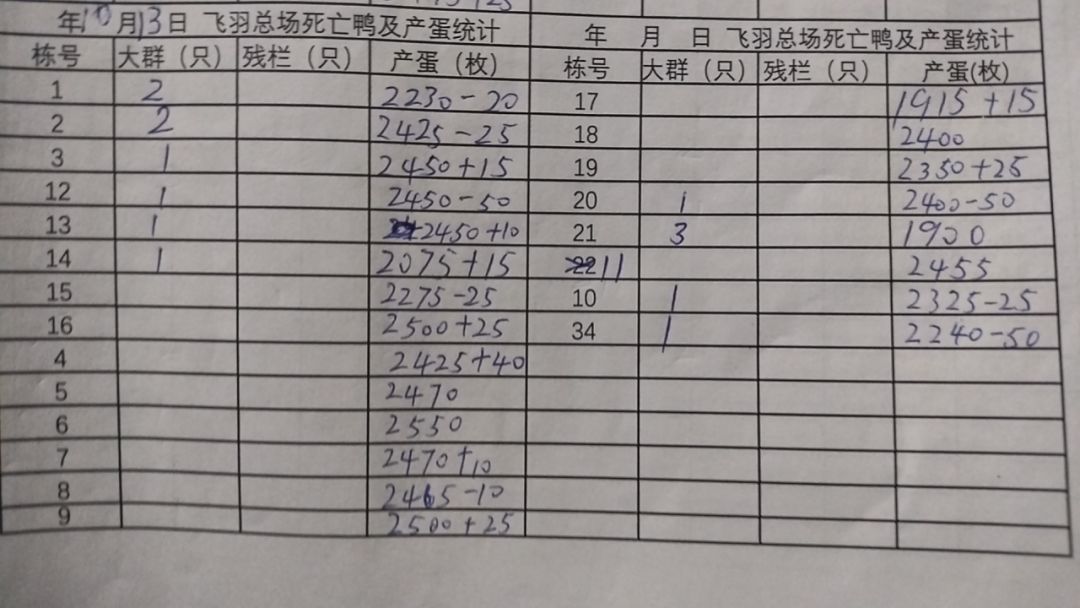 年10月13日 飞羽总场死亡鸭及产蛋统计 年 月 日 飞羽总场死亡鸭及产蛋统计
栋号 大群（只） 残栏（只） 产蛋（枚） 栋号 大群（只） 残栏（只） 产蛋(枚)
1 2 2230-20 17 1915+15
2 2 2425-25 18 2400
3 1 2450+15 19 2350+25
12 1 2450-50 20 1 2400-50
13 1 2450+10 21 3 1900
14 1 2075+15 11 2455
15 2275-25 10 1 2325-25
16 2500+25 34 1 2240-50
4 2425+40
5 2470
6 2550
7 2470+10
8 2465-10
9 2500+25